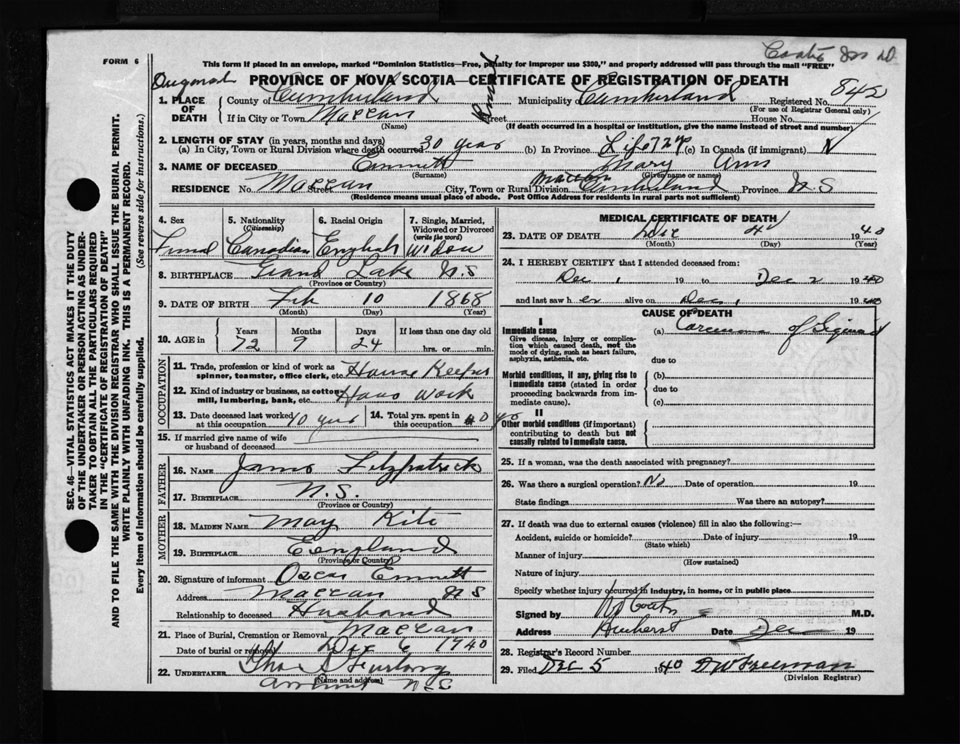 FORM 6
This form if placed in an envelope, marked "Dominion Statistics—Free, penalty for improper use $300," and properly addressed will pass through the mail "FREE"
PROVINCE OF NOVA SCOTIA—CERTIFICATE OF REGISTRATION OF DEATH
1. PLACE OF DEATH County of Cumberland Municipality of Cumberland Registered No. 842
(For use of Registrar General only)
If in City or Town Maccan Street House No.
(Name) (If death occurred in a hospital or institution, give the name instead of street and number)
2. LENGTH OF STAY (in years, months and days)
(a) In City, Town or Rural Division where death occurred 30 years (b) In Province Life 72 yr (c) In Canada (if immigrant) N
3. NAME OF DECEASED Emmett Mary Ann
(Surname) (Given name or names)
RESIDENCE No. Maccan Street City, Town or Rural Division Maccan Cumberland Province N.S
(Residence means usual place of abode. Post Office Address for residents in rural parts not sufficient)
4. Sex 5. Nationality (Citizenship) 6. Racial Origin 7. Single, Married, Widowed or Divorced (write the word)
Canadian English Widow
8. BIRTHPLACE Grand Lake N.S
(Province or Country)
9. DATE OF BIRTH Feb 10 1868
(Month) (Day) (Year)
10. AGE in Years Months Days If less than one day old
72 9 24 hrs. or min.
OCCUPATION
11. Trade, profession or kind of work as spinner, teamster, office clerk, etc. House Keeper
12. Kind of industry or business, as cotton mill, lumbering, bank, etc. Work
13. Date deceased last worked at this occupation 10 years 14. Total yrs. spent in this occupation
15. If married give name of wife or husband of deceased
FATHER
16. NAME James Fitzpatrick
17. BIRTHPLACE N.S.
(Province or Country)
MOTHER
18. MAIDEN NAME May Kite
19. BIRTHPLACE England
(Province or Country)
20. Signature of informant Oscar Emmett
Address Maccan N S
Relationship to deceased Husband
21. Place of Burial, Cremation or Removal Maccan
Date of burial or removal Dec 6 1940
22. UNDERTAKER
(Name and address)
MEDICAL CERTIFICATE OF DEATH
23. DATE OF DEATH Dec 4 1940
(Month) (Day) (Year)
24. I HEREBY CERTIFY that I attended deceased from:
Dec 1 19 to Dec 2 1940
and last saw h er alive on Dec 1 1940
CAUSE OF DEATH
I
Immediate cause (a) Carcinoma of Sigmoid
Give disease, injury or complication which caused death, not the mode of dying, such as heart failure, asphyxia, asthenia, etc.
due to
Morbid conditions, if any, giving rise to immediate cause (stated in order proceeding backwards from immediate cause).
(b)
due to
(c)
II
Other morbid conditions (if important) contributing to death but not causally related to immediate cause.
25. If a woman, was the death associated with pregnancy?
26. Was there a surgical operation? No Date of operation 19
State findings Was there an autopsy?
27. If death was due to external causes (violence) fill in also the following:—
Accident, suicide or homicide? Date of injury 19
(State which)
Manner of injury
(How sustained)
Nature of injury
Specify whether injury occurred in industry, in home, or in public place
Signed by M.D.
Address Amherst Date Dec 19
28. Registrar's Record Number
29. Filed Dec 5 1940 Freeman
(Division Registrar)
SEC. 46—VITAL STATISTICS ACT MAKES IT THE DUTY
OF THE UNDERTAKER OR PERSON ACTING AS UNDERTAKER TO OBTAIN ALL THE PARTICULARS REQUIRED
IN THE "CERTIFICATE OF REGISTRATION OF DEATH"
AND TO FILE THE SAME WITH THE DIVISION REGISTRAR WHO SHALL ISSUE THE BURIAL PERMIT.
WRITE PLAINLY WITH UNFADING INK. THIS IS A PERMANENT RECORD.
Every item of information should be carefully supplied. (See reverse side for instructions.)